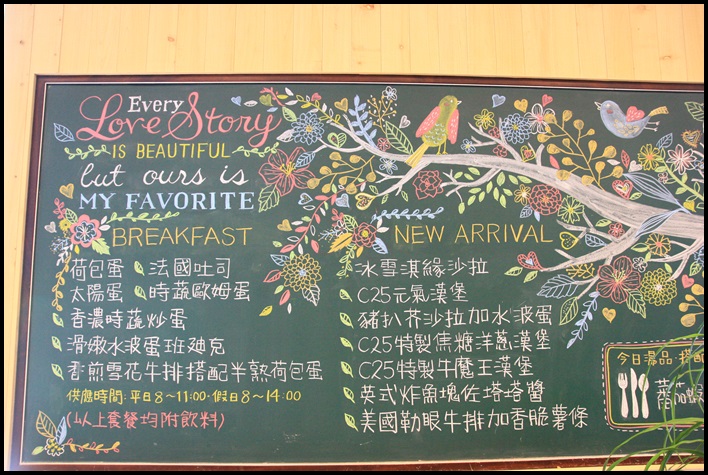 Every
Love Story
IS BEAUTIFUL
but ours is
MY FAVORITE
BREAKFAST
荷包蛋 法國吐司
太陽蛋 時蔬歐姆蛋
香濃時蔬炒蛋
滑嫩水波蛋班廸克
香煎雪花牛排搭配半熟荷包蛋
供應時間:平日8~11:00·假日8~14:00
(以上套餐均附飲料)
NEW ARRIVAL
冰雪淇緣沙拉
C25元氣漢堡
豬扒芥沙拉加水波蛋
C25特製焦糖洋蔥漢堡
C25特製牛魔王漢堡
英式炸魚塊佐塔塔醬
美國勒眼牛排加香脆薯條
今日湯品·搭配
蕃茄